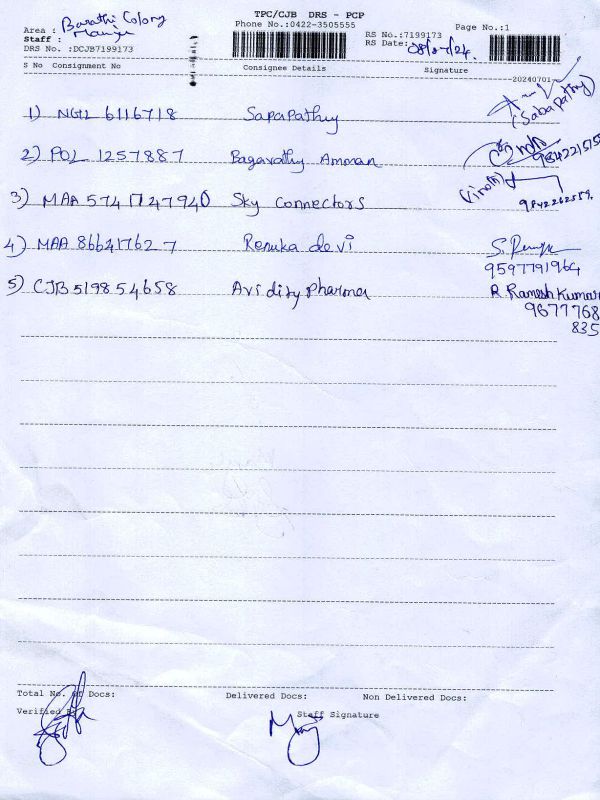 TPC/CJB DRS - PCP
Phone No.:0422-3505555
Page No.:1
Area : Barathi Colony
Staff : Manju
RS No.:7199173
RS Date: 08/07/24.
DRS No. :DCJB7199173
S No Consignment No Consignee Details Signature
20240701
1) NGL 6116718 Sapapathy (Sabapathy)
2) POL 1257887 Bagavathy Amman
3) MAA 5741747940 Sky Connectors (Vinoth) 9842262559.
4) MAA 866417627 Renuka devi
9597791964
5) CJB 519854658 Avidity pharma R Ramesh Kumar
9677768
835
Total No. of Docs: Delivered Docs: Non Delivered Docs:
Verified
Staff Signature